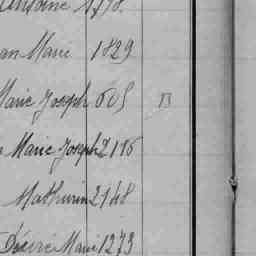 Antoine 1778
an Marie 1829
Marie Joseph 605 B
Marie Joseph 2116
Mathurin 2148
Désiré Marie 1273